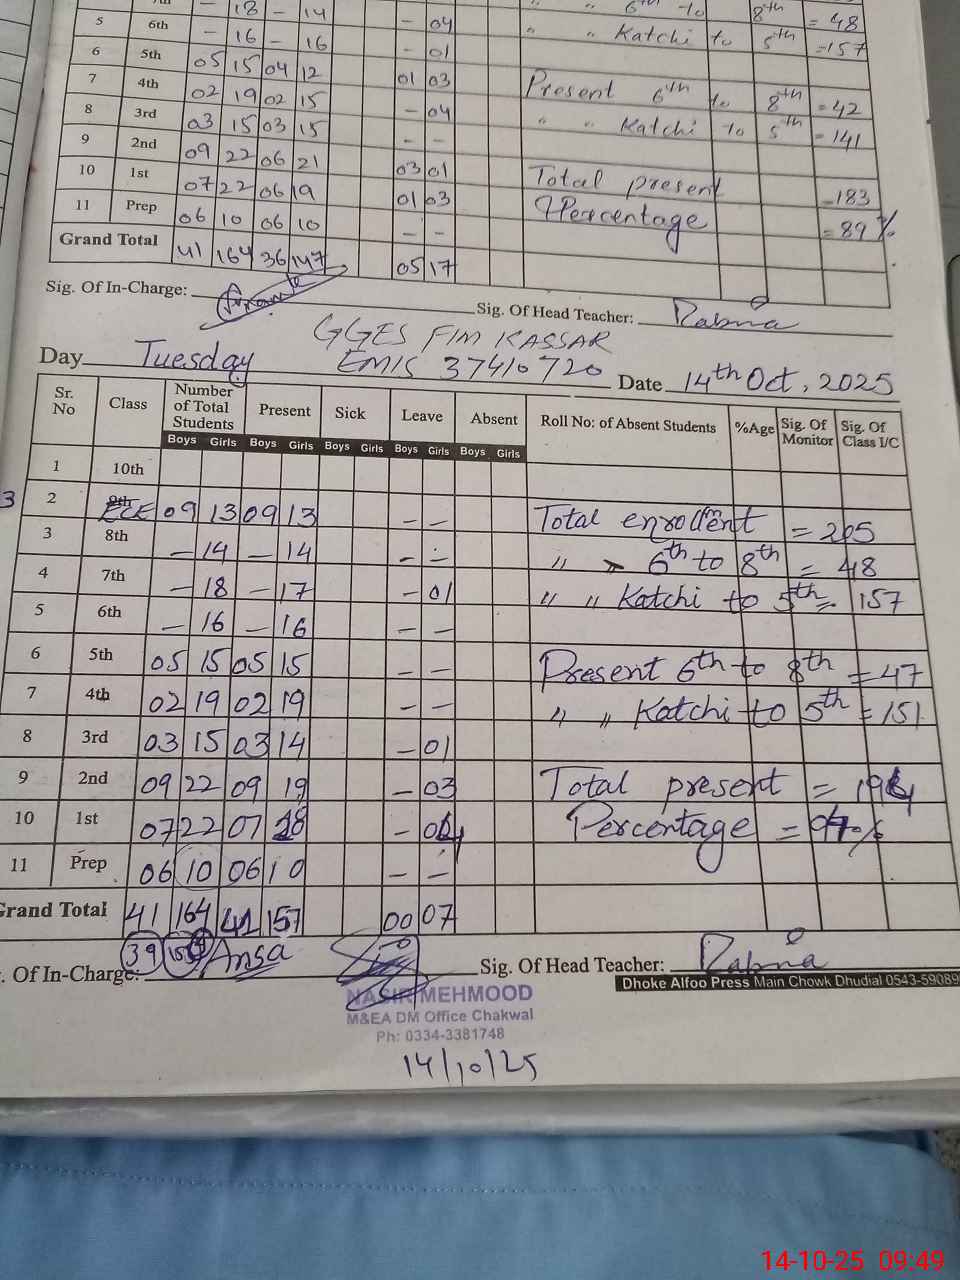 - 18 - 14 - 04 " " 6th to 8th = 48
5 6th - 16 - 16 - 01 " " Katchi to 5th =157
6 5th 05 15 04 12 01 03
7 4th 02 19 02 15 - 04 Present 6th to 8th = 42
8 3rd 03 15 03 15 - - " " Katchi to 5th = 141
9 2nd 09 22 06 21 03 01
10 1st 07 22 06 19 01 03 Total present =183
11 Prep 06 10 06 10 - - Percentage = 89%
Grand Total 41 164 36 147 05 17
Sig. Of In-Charge: Sig. Of Head Teacher: Rabnia
GGES FIM KASSAR
Day Tuesday EMIS 37410720 Date 14th Oct, 2025
Sr. No Class Number of Total Students Present Sick Leave Absent Roll No: of Absent Students %Age Sig. Of Monitor Sig. Of Class I/C
Boys Girls Boys Girls Boys Girls Boys Girls Boys Girls
1 10th
2 ECE 09 13 09 13 - - Total enrollment = 205
3 8th - 14 - 14 - - " " 6th to 8th = 48
4 7th - 18 - 17 - 01 " " Katchi to 5th = 157
5 6th - 16 - 16 - -
6 5th 05 15 05 15 - - Present 6th to 8th = 47
7 4th 02 19 02 19 - - " " Katchi to 5th = 151
8 3rd 03 15 03 14 - 01
9 2nd 09 22 09 19 - 03 Total present =
10 1st 07 22 07 18 - 04 Percentage =
11 Prep 06 10 06 10 - -
Grand Total 41 164 41 157 00 07
39 Ansa
. Of In-Charge: Sig. Of Head Teacher: Rabnia
Dhoke Alfoo Press Main Chowk Dhudial 0543-59089
NASIR MEHMOOD
M&EA DM Office Chakwal
Ph: 0334-3381748
14/10/25
14-10-25 09:49